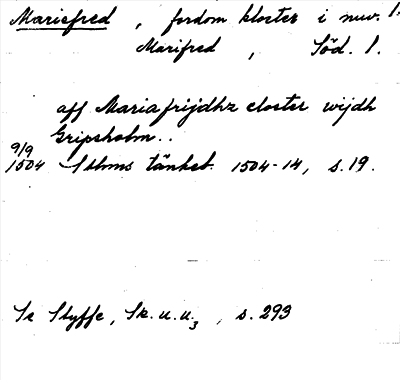 Mariefred , fordom kloster i nuv. l.
Marifred , Söd. l.
aff Mariafrijdhz closter wijdh
Gripsholm..
9/9
1504 Sthms tänkeb. 1504-14, s.19.
Se Styffe, Sk.u.u.3 , s. 293